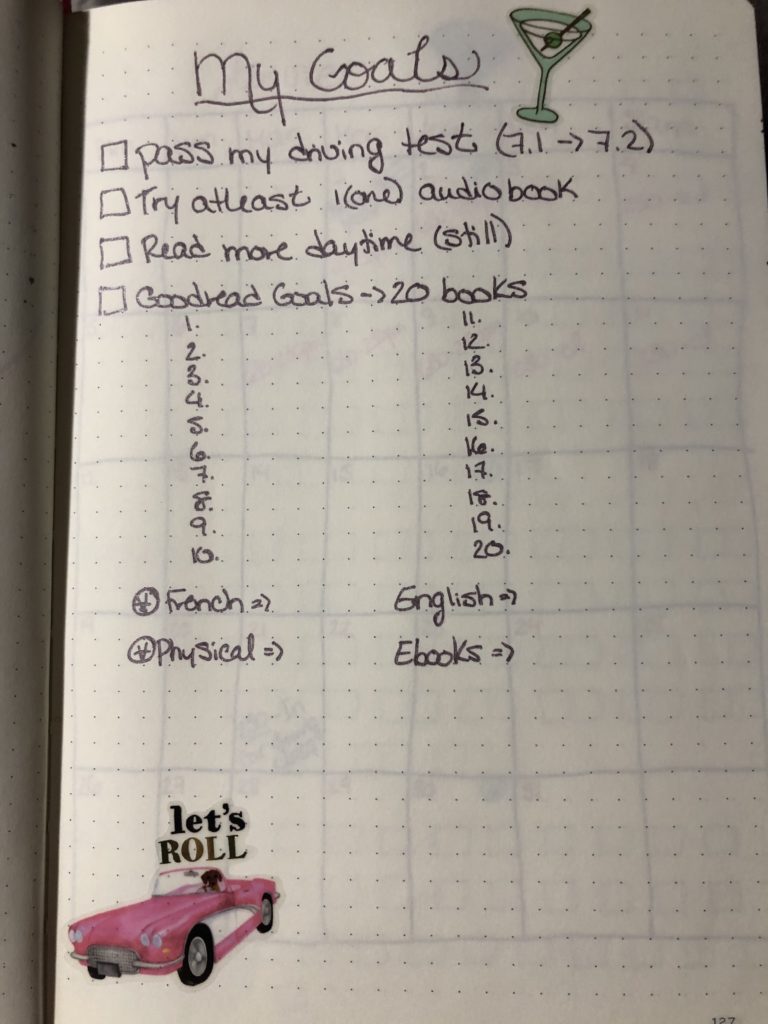 My Goals
☐ pass my driving test (7.1 -> 7.2)
☐ Try atleast 1(one) audiobook
☐ Read more daytime (still)
☐ Goodread Goals -> 20 books
1. 11.
2. 12.
3. 13.
4. 14.
5. 15.
6. 16.
7. 17.
8. 18.
9. 19.
10. 20.
French => English =>
Physical => Ebooks =>
let's
ROLL
127